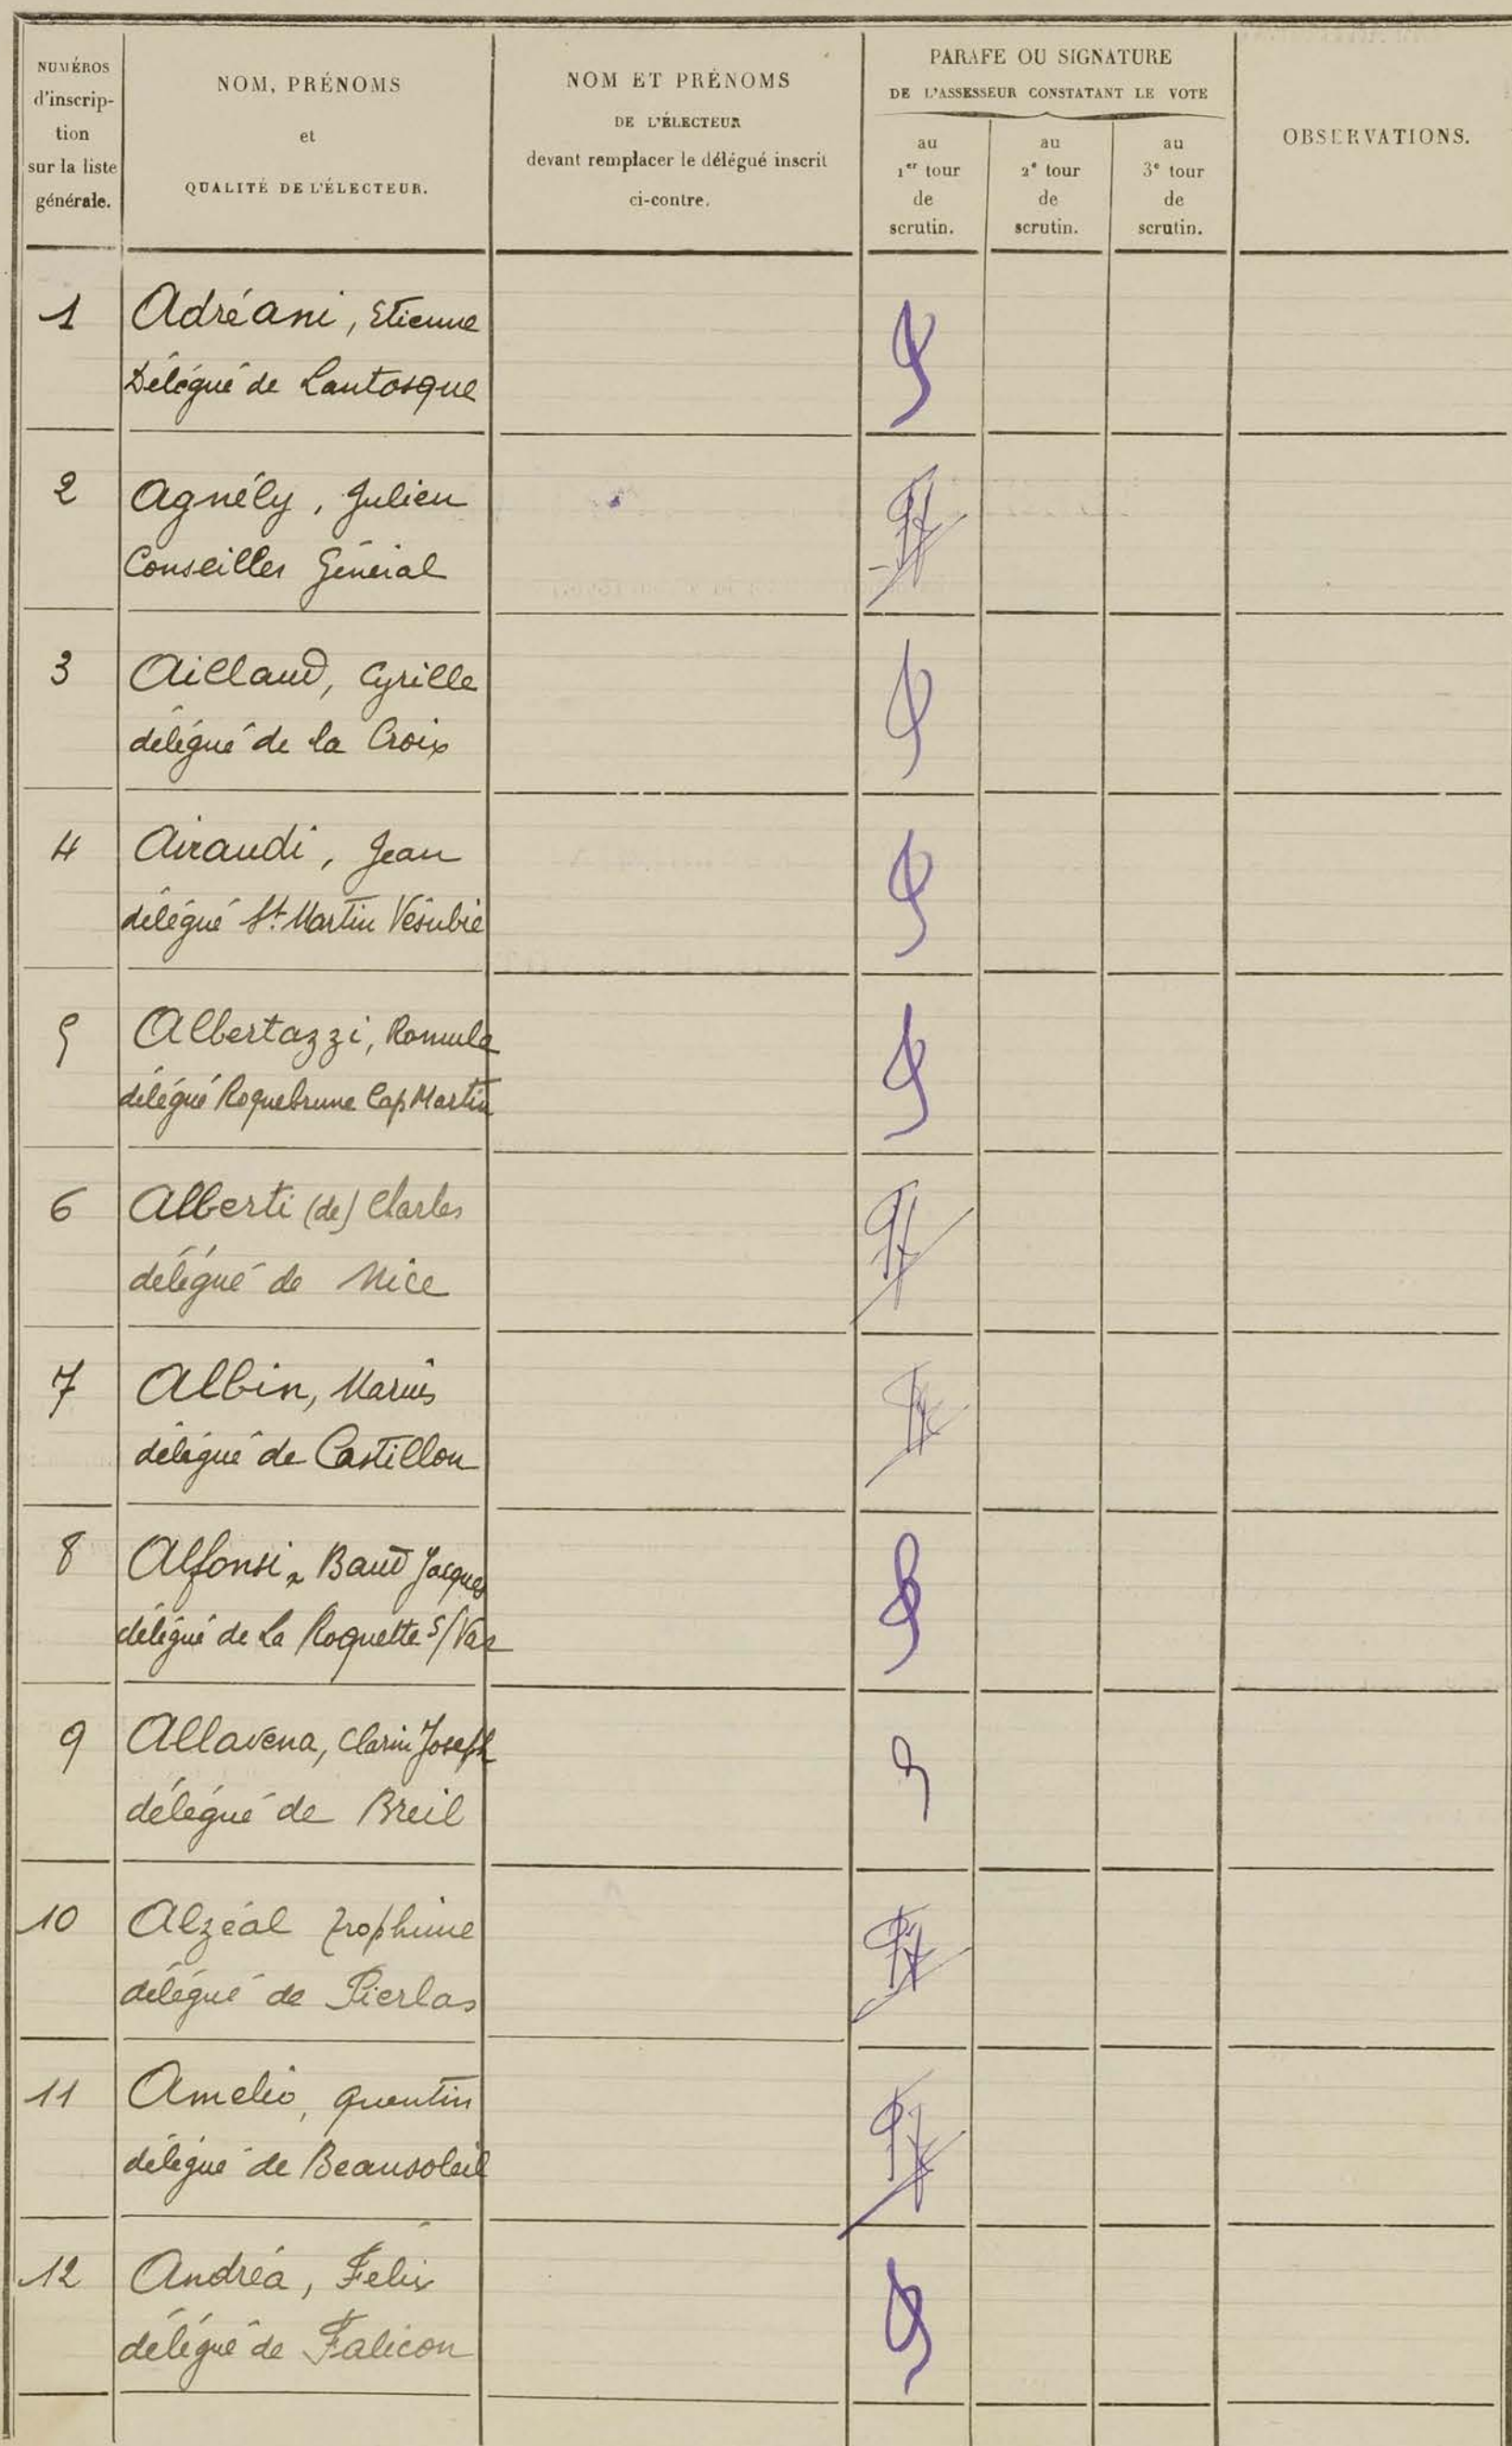 NUMÉROS
d'inscrip-
tion
sur la liste
générale.
NOM, PRÉNOMS
et
QUALITÉ DE L'ÉLECTEUR.
NOM ET PRÉNOMS
DE L'ÉLECTEUR
devant remplacer le délégué inscrit
ci-contre.
PARAFE OU SIGNATURE
DE L'ASSESSEUR CONSTATANT LE VOTE
au
1er tour
de
scrutin.
au
2e tour
de
scrutin.
au
3e tour
de
scrutin.
OBSERVATIONS.
1 Adréani, Etienne
Délégué de Lantosque
2 Agnély, Julien
Conseiller Général
3 Aillaud, Cyrille
délégué de la Croix
4 Airaudi, Jean
délégué St. Martin Vésubie
5 Albertazzi, Romula
délégué Roquebrune Cap Martin
6 Alberti (de) Charles
délégué de Nice
7 Albin, Marius
délégué de Castillon
8 Alfonsi, Baud Jacques
délégué de La Roquette s/Var
9 Allavena, Clarin Joseph
délégué de Breil
10 Alzéal Trophime
délégué de Pierlas
11 Amelio, Quentin
délégué de Beausoleil
12 Andréa, Felix
délégué de Falicon